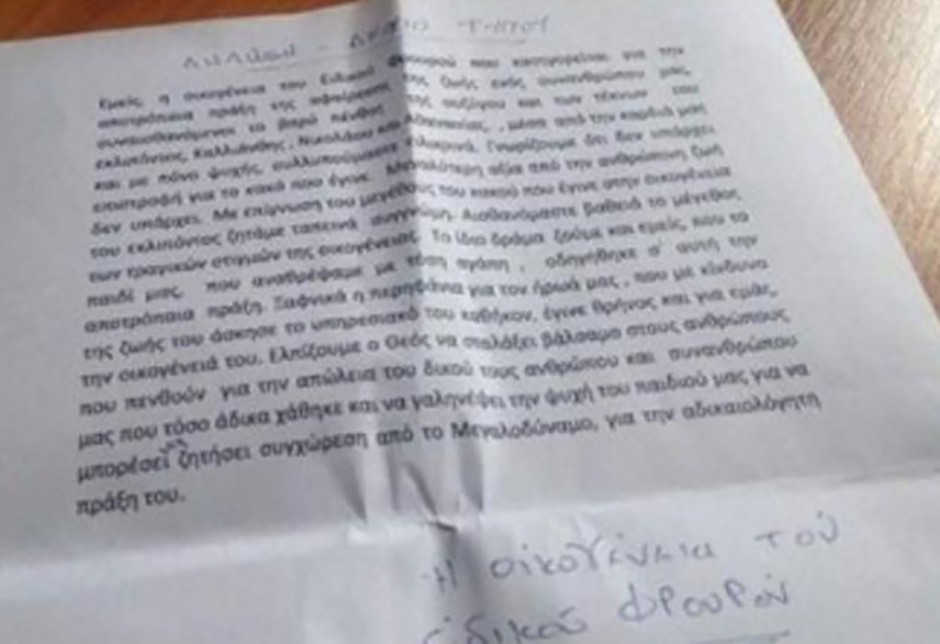 ΔΗΛΩΣΗ - ΔΕΛΤΙΟ ΤΥΠΟΥ
Εμείς, η οικογένεια του Ειδικού φρουρού που κατηγορείται για την
αποτρόπαια πράξη της αφαίρεσης της ζωής ενός συνανθρώπου μας,
συναισθανόμενοι το βαρύ πένθος της συζύγου και των τέκνων του
εκλιπόντος, Καλλιάνθης, Νικολάου και Αθανασίας, , μέσα από την καρδιά μας
και με πόνο ψυχής, συλλυπούμαστε ειλικρινά. Γνωρίζουμε ότι δεν υπάρχει
επιστροφή για το κακό που έγινε. Μεγαλύτερη αξία από την ανθρώπινη ζωή
δεν υπάρχει. Με επίγνωση του μεγέθους του κακού που έγινε στην οικογένεια
του εκλιπόντος ζητάμε ταπεινά συγγνώμη. Αισθανόμαστε βαθειά το μέγεθος
των τραγικών στιγμών της οικογένειας. Το ίδιο δράμα ζούμε και εμείς, που το
παιδί μας, που αναθρέψαμε με τόση αγάπη , οδηγήθηκε σ' αυτή την
αποτρόπαια πράξη. Ξαφνικά η περηφάνια για τον ήρωά μας , που με κίνδυνο
της ζωής του άσκησε το υπηρεσιακό του καθήκον, έγινε θρήνος και για εμάς,
την οικογένειά του. Ελπίζουμε ο Θεός να σταλάξει βάλσαμο στους ανθρώπους
που πενθούν για την απώλεια του δικού τους ανθρώπου και συνανθρώπου
μας που τόσο άδικα χάθηκε και να γαληνέψει την ψυχή του παιδιού μας για να
μπορέσει να ζητήσει συγχώρεση από το Μεγαλοδύναμο, για την αδικαιολόγητη
πράξη του.
Η οικογένεια τού
ειδικού φρουρού